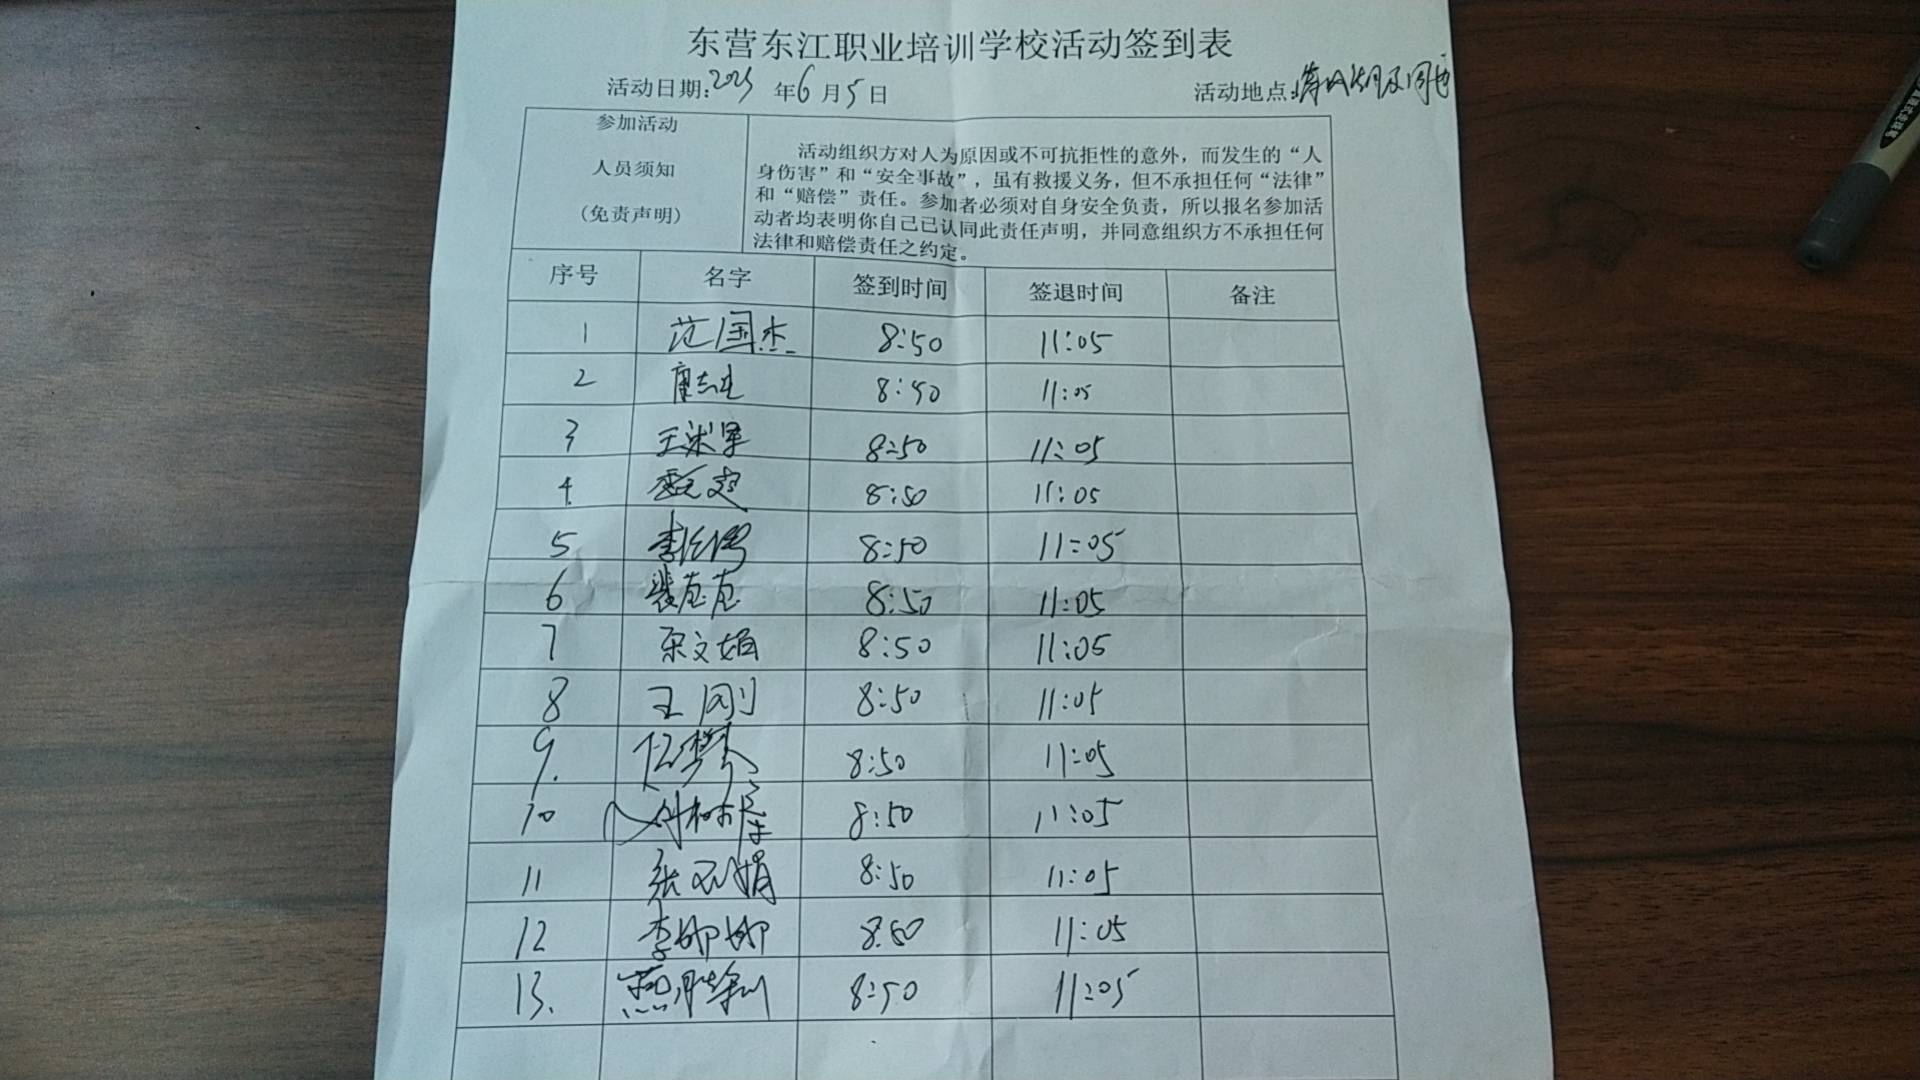 东营东江职业培训学校活动签到表
活动日期:2023年6月5日 活动地点:
参加活动
人员须知
(免责声明)
活动组织方对人为原因或不可抗拒性的意外，而发生的“人
身伤害”和“安全事故”，虽有救援义务，但不承担任何“法律”
和“赔偿”责任。参加者必须对自身安全负责，所以报名参加活
动者均表明你自己已认同此责任声明，并同意组织方不承担任何
法律和赔偿责任之约定。
序号 名字 签到时间 签退时间 备注
1 范国杰 8:50 11:05
2 8:50 11:05
3 8:50 11:05
4. 8:50 11:05
5 8:50 11:05
6 裴苞苞 8:50 11:05
7 宋文娟 8:50 11:05
8 王刚 8:50 11:05
9. 8:50 11:05
10 8:50 11:05
11 8:50 11:05
12 李娜娜 8:50 11:05
13. 燕胜利 8:50 11:05